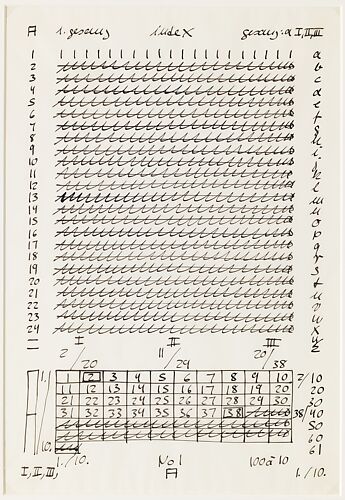 A 1. gesang index gesang: a I, II, III
1 a
2 b
3 c
4 d
5 e
6 f
7 g
8 h
9 i
10 j
11 k
12 l
13 m
14 n
15 o
16 p
17 q
18 r
19 s
20 t
21 u
22 v
23 w
24 x
I II III z
2/20 11/29 20/38
1. 1 2 3 4 5 6 7 8 9 10 2/10
11 12 13 14 15 16 17 18 19 20 20
21 22 23 24 25 26 27 28 29 30 30
31 32 33 34 35 36 37 38 38/40
50
60
10. 61
1./10. No 1 100 à 10
I, II, III, A 1./10.